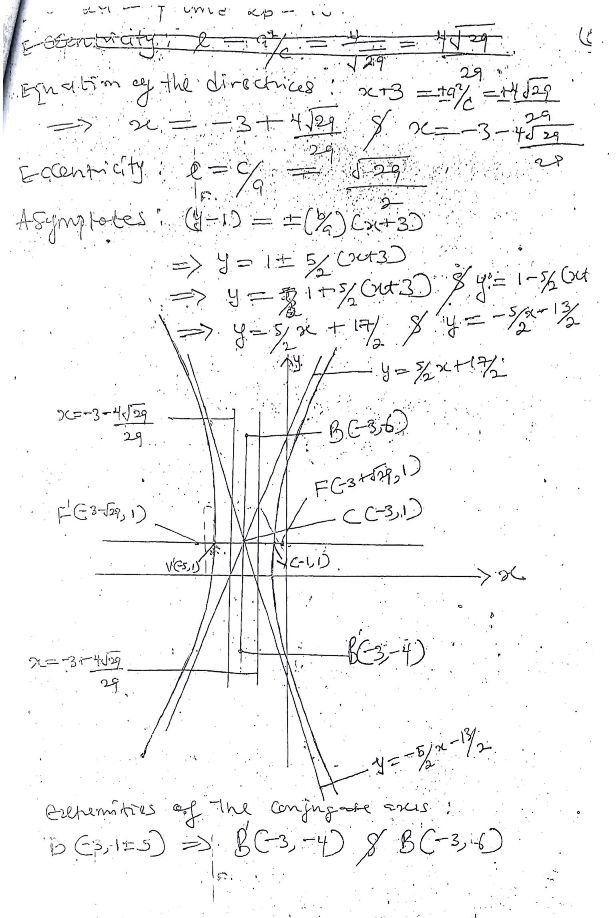 Eccentricity : e = a²/c = 4/√29 = 4√29/29
Equation of the directrices : x+3 = ±a²/c = ±4√29/29
⇒ x = -3 + 4√29/29 & x = -3 - 4√29/29
Eccentricity : e = c/a = √29/2
Asymptotes : (y-1) = ±(b/a)(x+3)
⇒ y = 1 ± 5/2 (x+3)
⇒ y = 1 + 5/2 (x+3) & y = 1 - 5/2 (x+
⇒ y = 5/2 x + 17/2 & y = -5/2 x - 13/2
y
y = 5/2 x + 17/2
x = -3 - 4√29/29
B(-3,6)
F(-3+√29,1)
F'(-3-√29, 1)
C(-3,1)
V'(-5,1)
V(-1,1)
x
x = -3 + 4√29/29
B'(-3,-4)
y = -5/2 x - 13/2
Extremities of the conjugate axis :
B(-3, 1±5) ⇒ B'(-3, -4) & B(-3, 6)